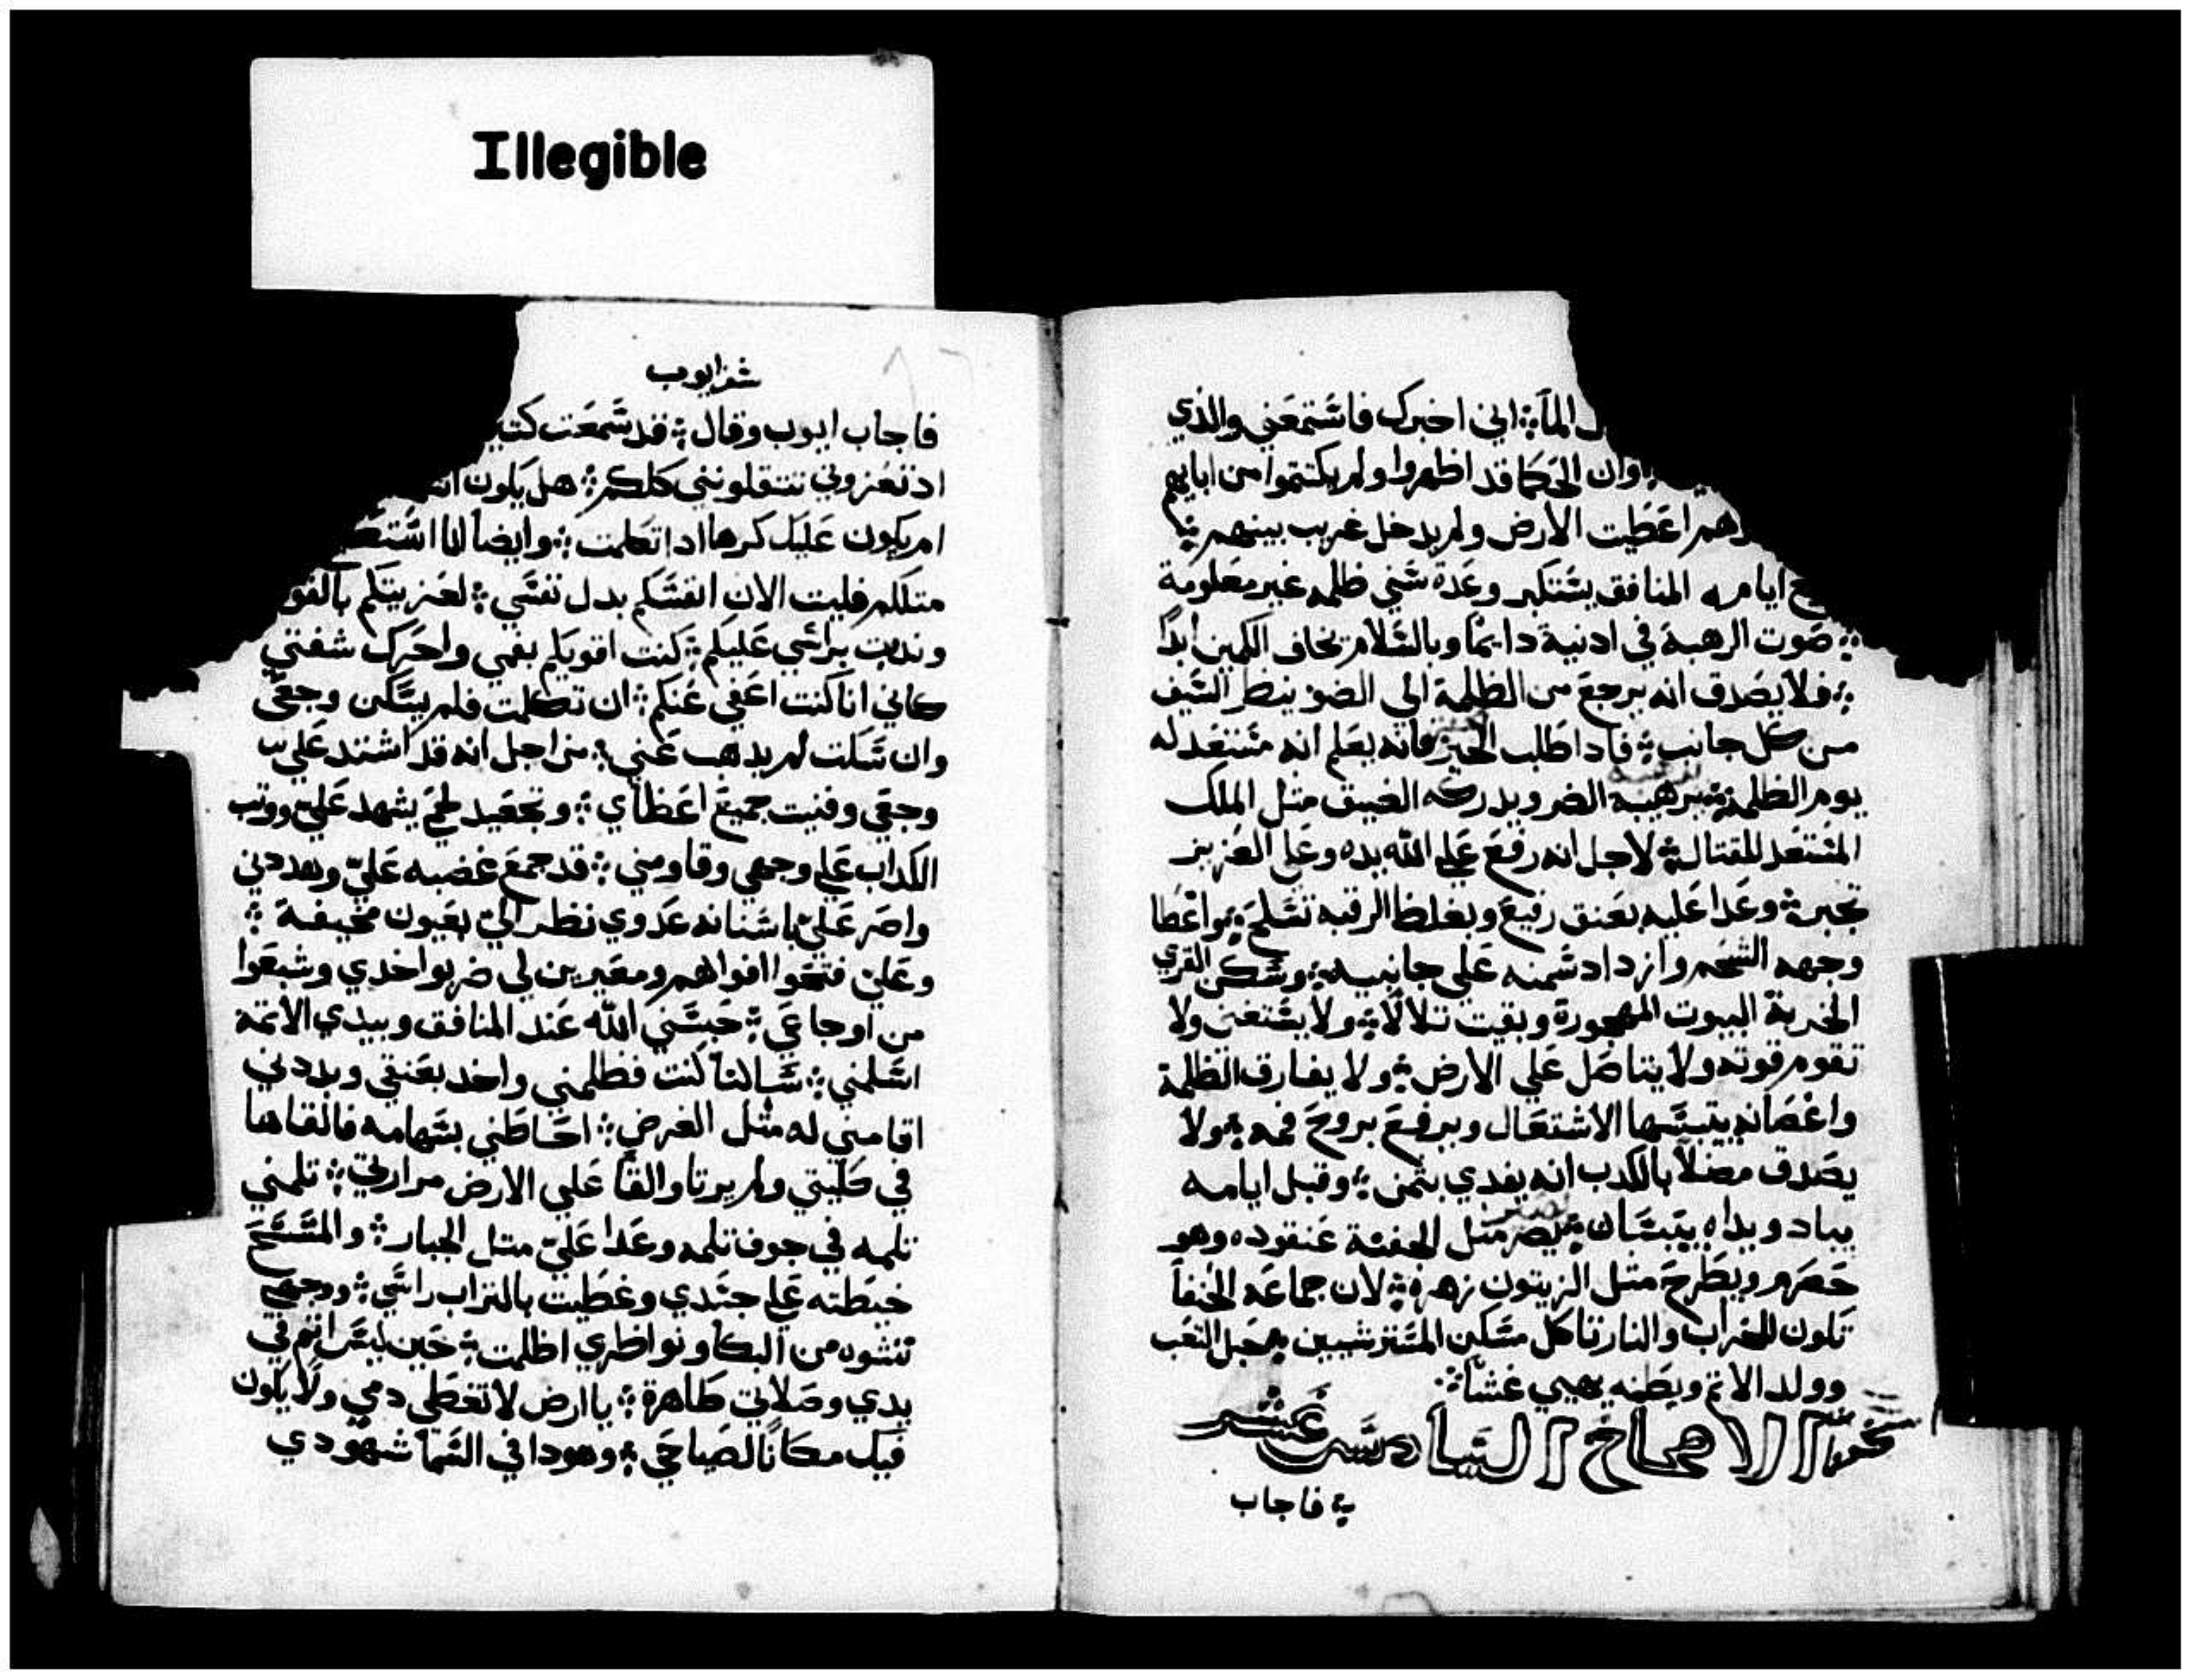 Illegible
الماء ؞ اني اخبرك فاستمعني والذي
وان الحكما قد اظهروا ولم يكتموا من ابايهم
اعطيت الارض ولم يدخل غريب بينهم ؞
ايامه المنافق يستكبر وعدة سني ظلمه غير معلومة
؞ صوت الرهبة في ادنية دايما وبالسلام تخاف الكمين ابداً
؞ فلا يصدق انه يرجع من الظلمة الي الضو ينظر السيف
من كل جانب ؞ فادا طلب الخبز فانه يعلم انه مستعد له
يوم الظلمة ؞ يرهبه الضر ويدركه الضيق مثل الملك
المستعد للقتال ؞ لاجل انه رفع علي الله يده وعلي العزيز
تجبر ؞ وعدا عليه بعنق رفيع وبغلظ الرقبه تسلح ؞ واغطا
وجهه الشحم وازداد شمنه علي جانبيه ؞ وسكن القري
الخربة البيوت المهجورة وبقيت تلالاً ؞ ولا يستغني ولا
تقوم قوته ولا يتاصل علي الارض ؞ ولا يفارق الظلمة
واغصانه يتبسها الاشتعال ويرفع بروح فمه ؞ ولا
يصدق مضلاً بالكدب انه يفدي بثمن ؞ وقبل ايامه
يباد ويداه يتبسان ؞ مثل الجفنة عنقوده وهو
حصرم ويطرح مثل الزيتون زهره ؞ لان جماعه الحنفا
تكون للخراب والنار تاكل مسكن المسترشيين ؞ حبل التعب
وولد الاثم وبطنه يهيي غشاً ؞
الاصحاح السادس عشر
؞ فاجاب
سفر ايوب
فاجاب ايوب وقال ؞ قد سمعت
اد تعزوني تتقلونني كلكم ؞ هل يكون
ام يكون عليك كرها ادا تكلمت ؞ وايضاً انا
متلكم فليت الان انفسكم بدل نفسي ؞ لعزيتكم
وندبت براسي عليكم ؞ كنت اقويكم بفمي واحرك شفتي
كاني انا كنت اعفي عنكم ؞ ان تكلمت فلم يسكن وجعي
وان سكت لم يدهب عني ؞ من اجل انه قد اشتد علي
وجعي وفنيت جميع اعظاي ؞ وتجعيد لحمي يشهد علي ووتب
الكداب علي وجهي وقاومني ؞ قد جمع غضبه علي وهددني
واصر علي باسنانه عدوي نظر الي بعيون مخيفة ؞
وعلي فتحوا افواههم ومعيرين لي ضربوا خدي وشبعوا
من اوجاعي ؞ حبسني الله عند المنافق وبيدي الاتمة
اسلمني ؞ سالماً كنت فظلمني واخد بعنقي وبددني
اقامني له مثل الغرض ؞ احاطني بسهامه فالقاها
في كليتي ولم يرتا والقا علي الارض مرارتي ؞ تلمني
تلمه في جوف تلمه وعدا علي متل الجبار ؞ والمسح
خيطته علي جسدي وغطيت بالتراب راسي ؞ ووجهي
تشوه من البكا ونواظري اظلمت ؞ حين ليس اثم في
يدي وصلاتي طاهرة ؞ يا ارض لا تغطي دمي ولا يكون
فيك مكاناً لصياحي ؞ وهودا في السما شهودي